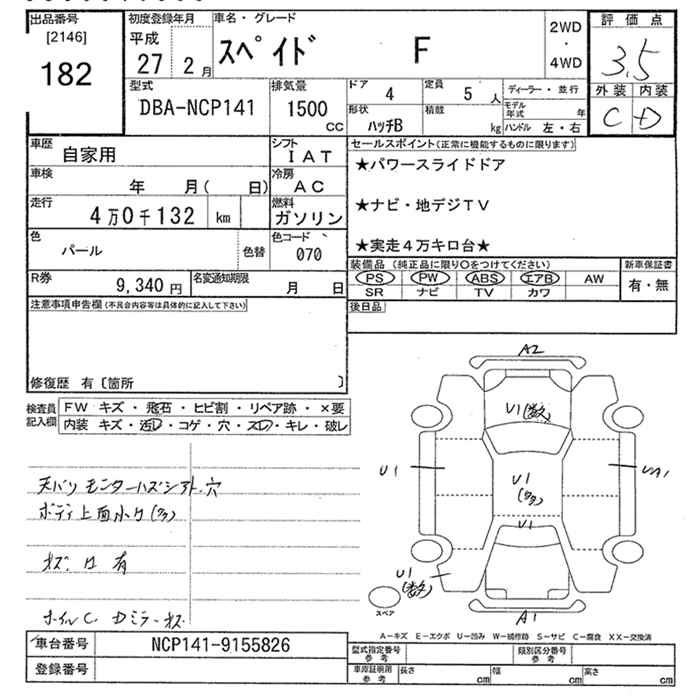 出品番号
[2146]
182
初度登録年月
平成
27 2月
車名・グレード
スペイド F
2WD
・
4WD
評価点
3.5
外装 内装
C D
型式
DBA-NCP141
排気量
1500
CC
ドア
4
定員
5 人
ディーラー・並行
形状
ハッチB
積載
kg
モデル年式 年
ハンドル 左・右
車歴
自家用
シフト
IAT
車検
年 月( 日)
冷房
AC
走行
4万0千132 km
燃料
ガソリン
色
パール
色替
色コード
070
R券
9,340円
名変通知期限
月 日
セールスポイント(正常に機能するものに限ります)
★パワースライドドア
★ナビ・地デジTV
★実走4万キロ台★
装備品 (純正品に限り○をつけてください)
PS PW ABS エアB AW
SR ナビ TV カワ
新車保証書
有・無
後日品
注意事項申告欄(不具合内容等は具体的に記入して下さい)
修復歴 有〔箇所 〕
検査員
記入欄
FW キズ・飛石・ヒビ割・リペア跡・×要
内装 キズ・汚レ・コゲ・穴・スレ・キレ・破レ
天バリ モニターハズシアト.穴
ボディ上面小U
有
ホイルC Dミラーキズ
A2
U1
U1
U1
U1
U1
A1
スペア
A－キズ E－エクボ U－凹み W－補修跡 S－サビ C－腐食 XX－交換済
車台番号
NCP141-9155826
登録番号
型式指定番号
参考
類別区分番号
参考
車庫証明用
参考
長さ cm
幅 cm
高さ cm